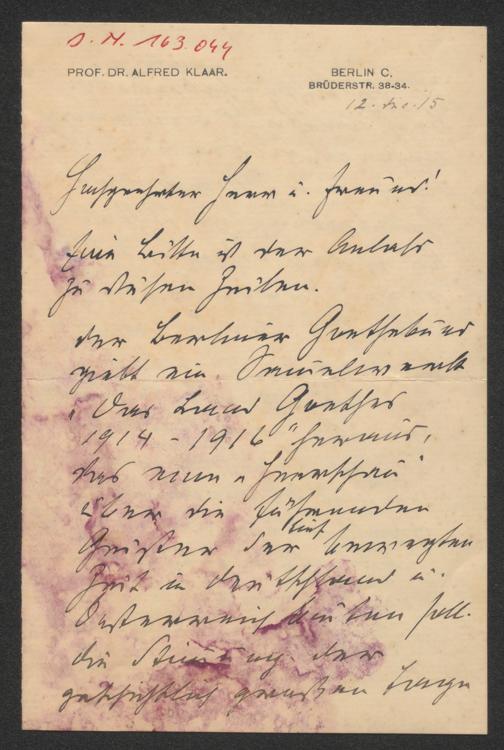 J. N. 163.044
PROF. DR. ALFRED KLAAR.
BERLIN C.
BRÜDERSTR. 38-34.
12. Dec. 15
Hochgeehrter Herr u. Freund!
Eine Bitte ist der Anlaß
zu diesen Zeilen.
Der Berliner Goethebund
giebt ein Sammelwerk
„Das Land Goethes
1914 - 1916" heraus,
das eine „Heerschau"
über die führenden
Geister der tief bewegten
Zeit in Deutschland u.
Oesterreich bieten soll.
Die Stimmung der
geschichtlich großen Tage